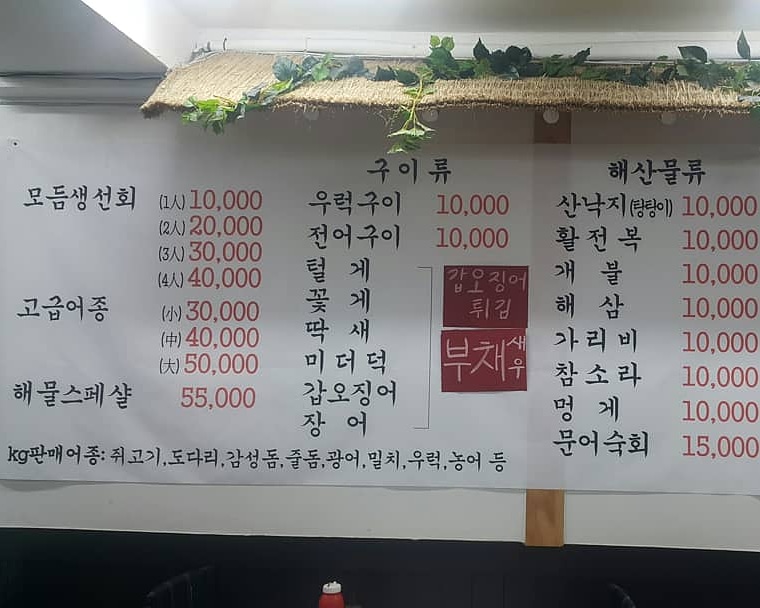 모듬생선회 (1人) 10,000
(2人) 20,000
(3人) 30,000
(4人) 40,000
고급어종 (小) 30,000
(中) 40,000
(大) 50,000
해물스페샬 55,000
구이류
우럭구이 10,000
전어구이 10,000
털게
꽃게
딱새
미더덕
갑오징어
장어
갑오징어
튀김
부채새우
해산물류
산낙지(탕탕이) 10,000
활전복 10,000
개불 10,000
해삼 10,000
가리비 10,000
참소라 10,000
멍게 10,000
문어숙회 15,000
kg판매어종: 쥐고기,도다리,감성돔,줄돔,광어,밀치,우럭,농어 등